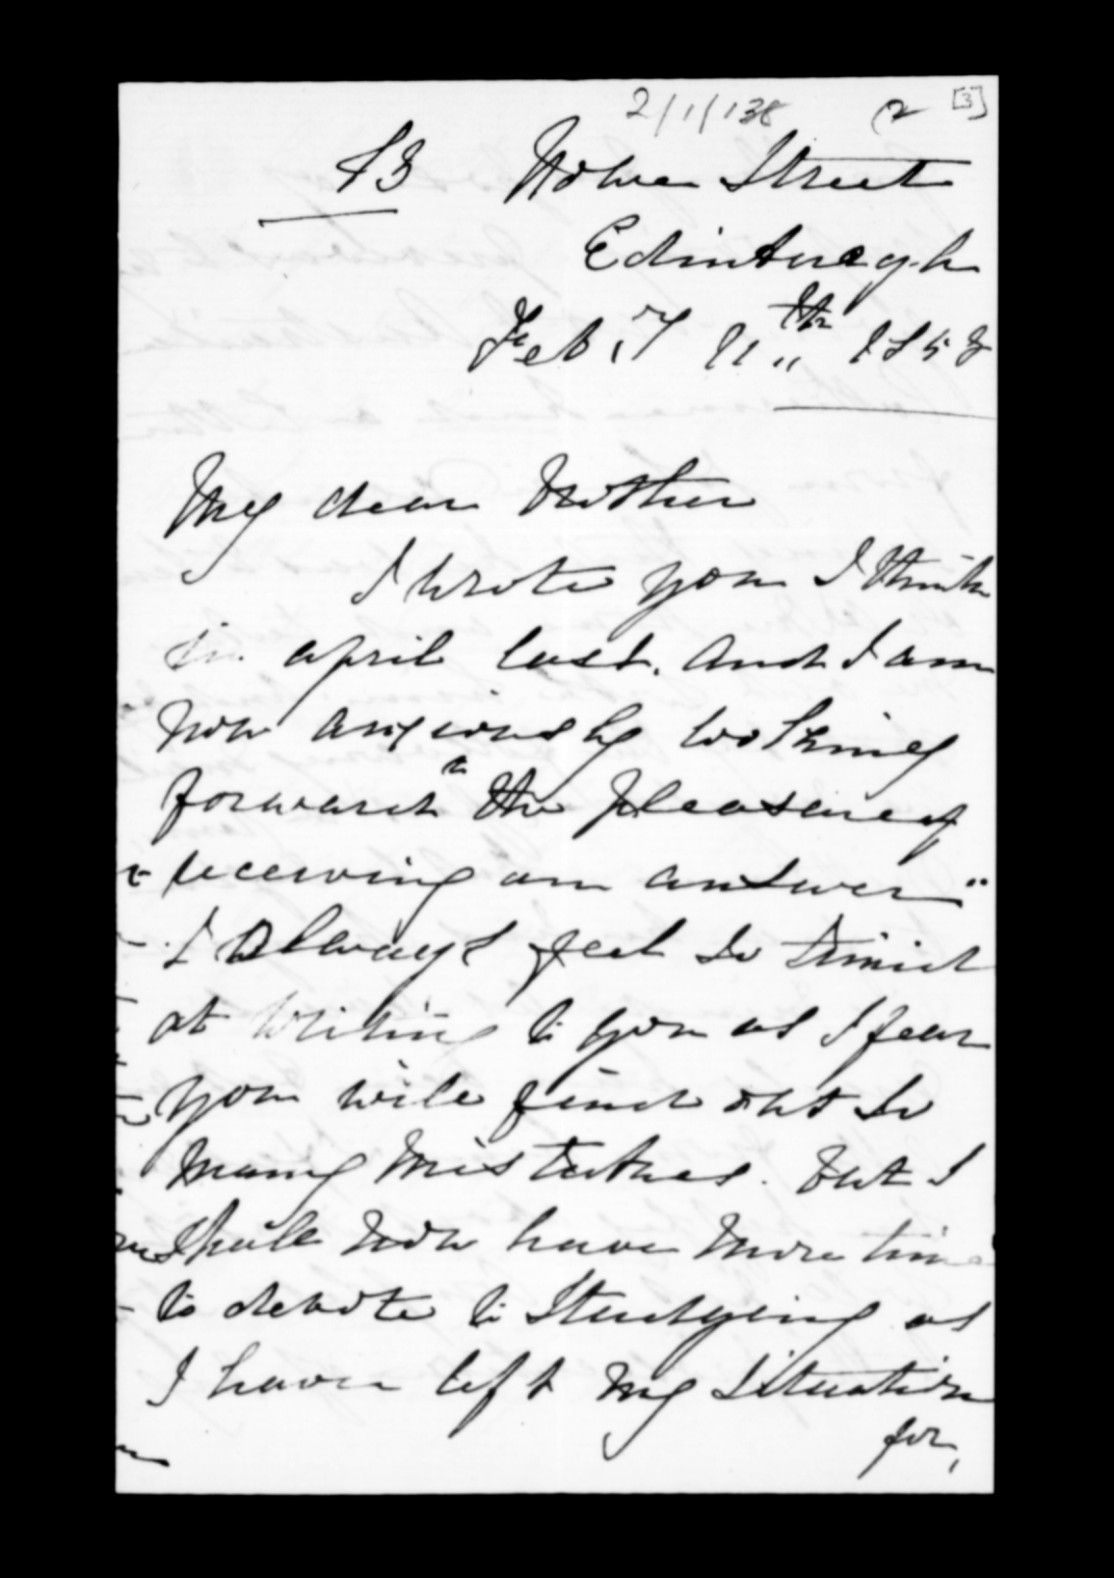 2/1/138 (2 [3]
13 Street
Edinburgh
Feb.y 11th 1858
My dear Mother
I wrote you I think
in april last. And I am
now anxiously looking
forward to the pleasure of
receiving an answer"
I Always feel so timid
at writing to you as I fear
you will find out so
many mistakes. But I
shall now have more time
to devote to Studying as
I have left my situation
for,